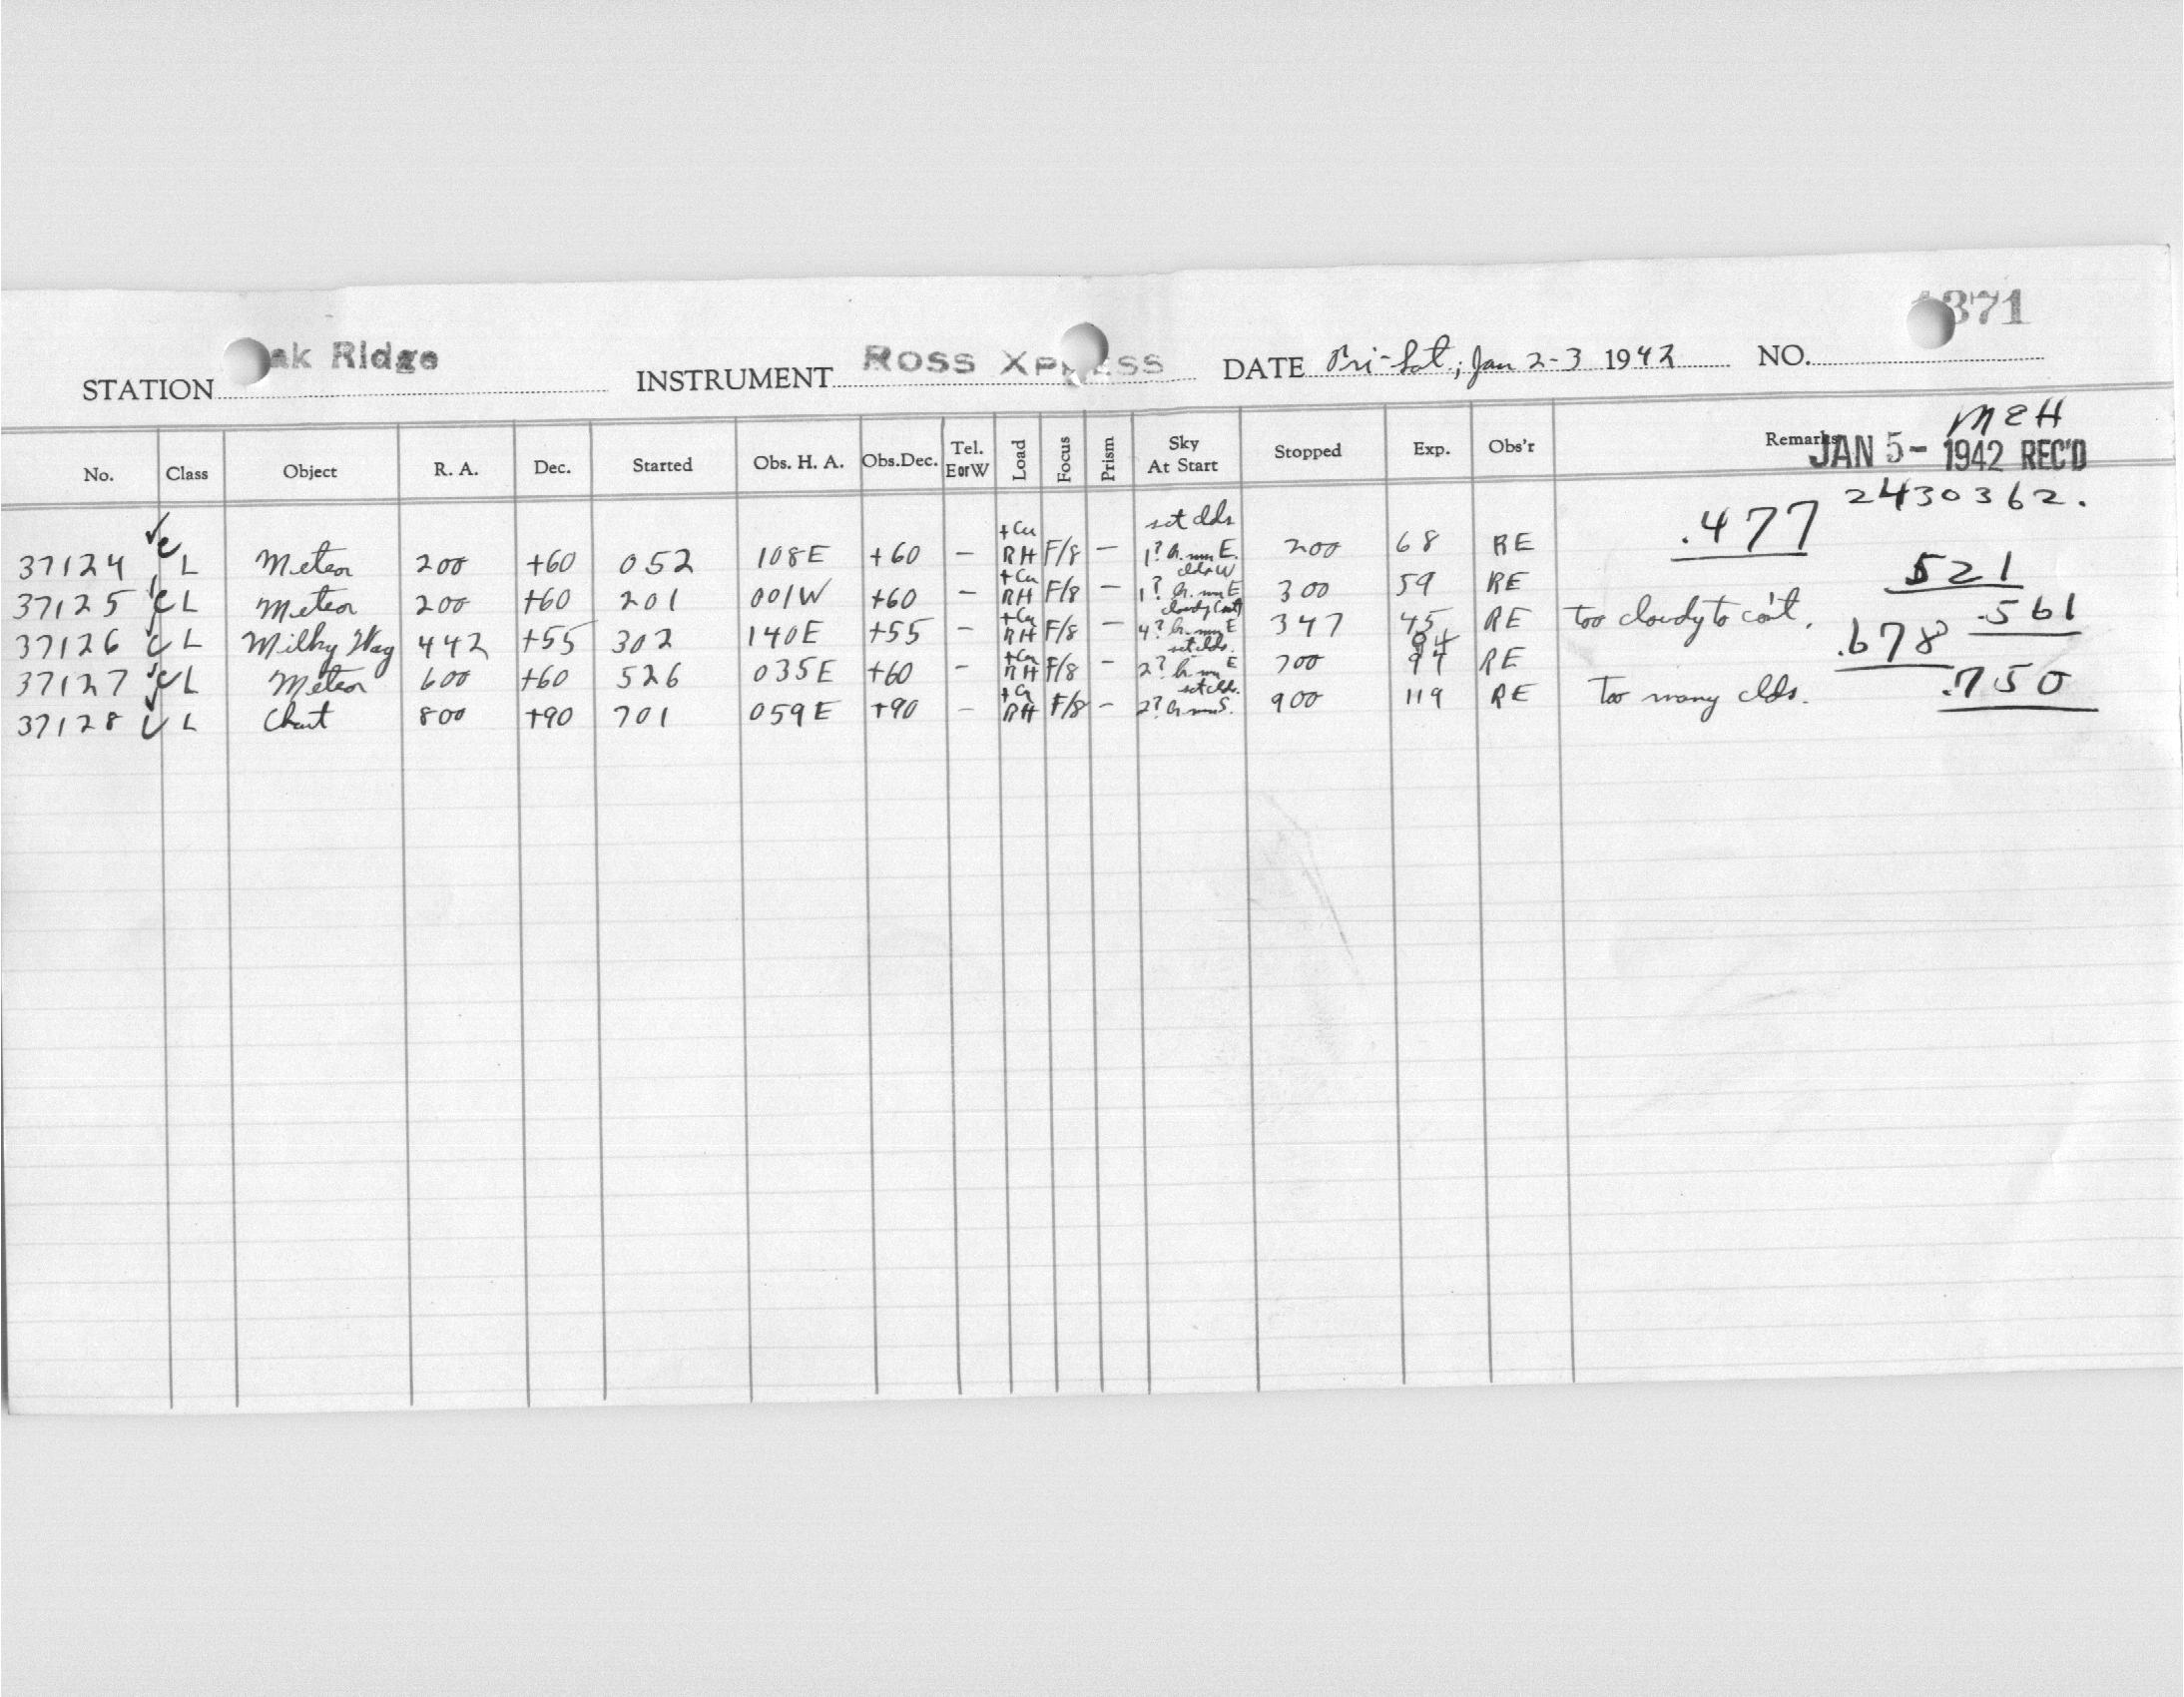 371
STATION ak Ridge INSTRUMENT ROSS XP SS DATE Fri-Sat; Jan 2-3 1942 NO.
MEH
No. Class Object R. A. Dec. Started Obs. H. A. Obs.Dec. Tel. E or W Load Focus Prism Sky At Start Stopped Exp. Obs'r Remarks
JAN 5- 1942 REC'D
2430362.
+Cu sct clds
37124 C L Meteor 200 +60 052 108E +60 - RH F/8 - 1? E. 200 68 RE .477
+Cu clds W
37125 C L Meteor 200 +60 201 001W +60 - RH F/8 - 1? E 300 59 RE 521
+Cu cloudy
37126 C L Milky Way 442 +55 302 140E +55 - RH F/8 - 4? E 347 45 RE Too cloudy to con't. .561
+Cu sct clds. 94
37127 C L Meteor 600 +60 526 035E +60 - RH F/8 - 2? E 700 94 RE .678
+Cu sct clds.
37128 C L Chart 800 +90 701 059E +90 - RH F/8 - 2? S. 900 119 RE Too many clds. .750